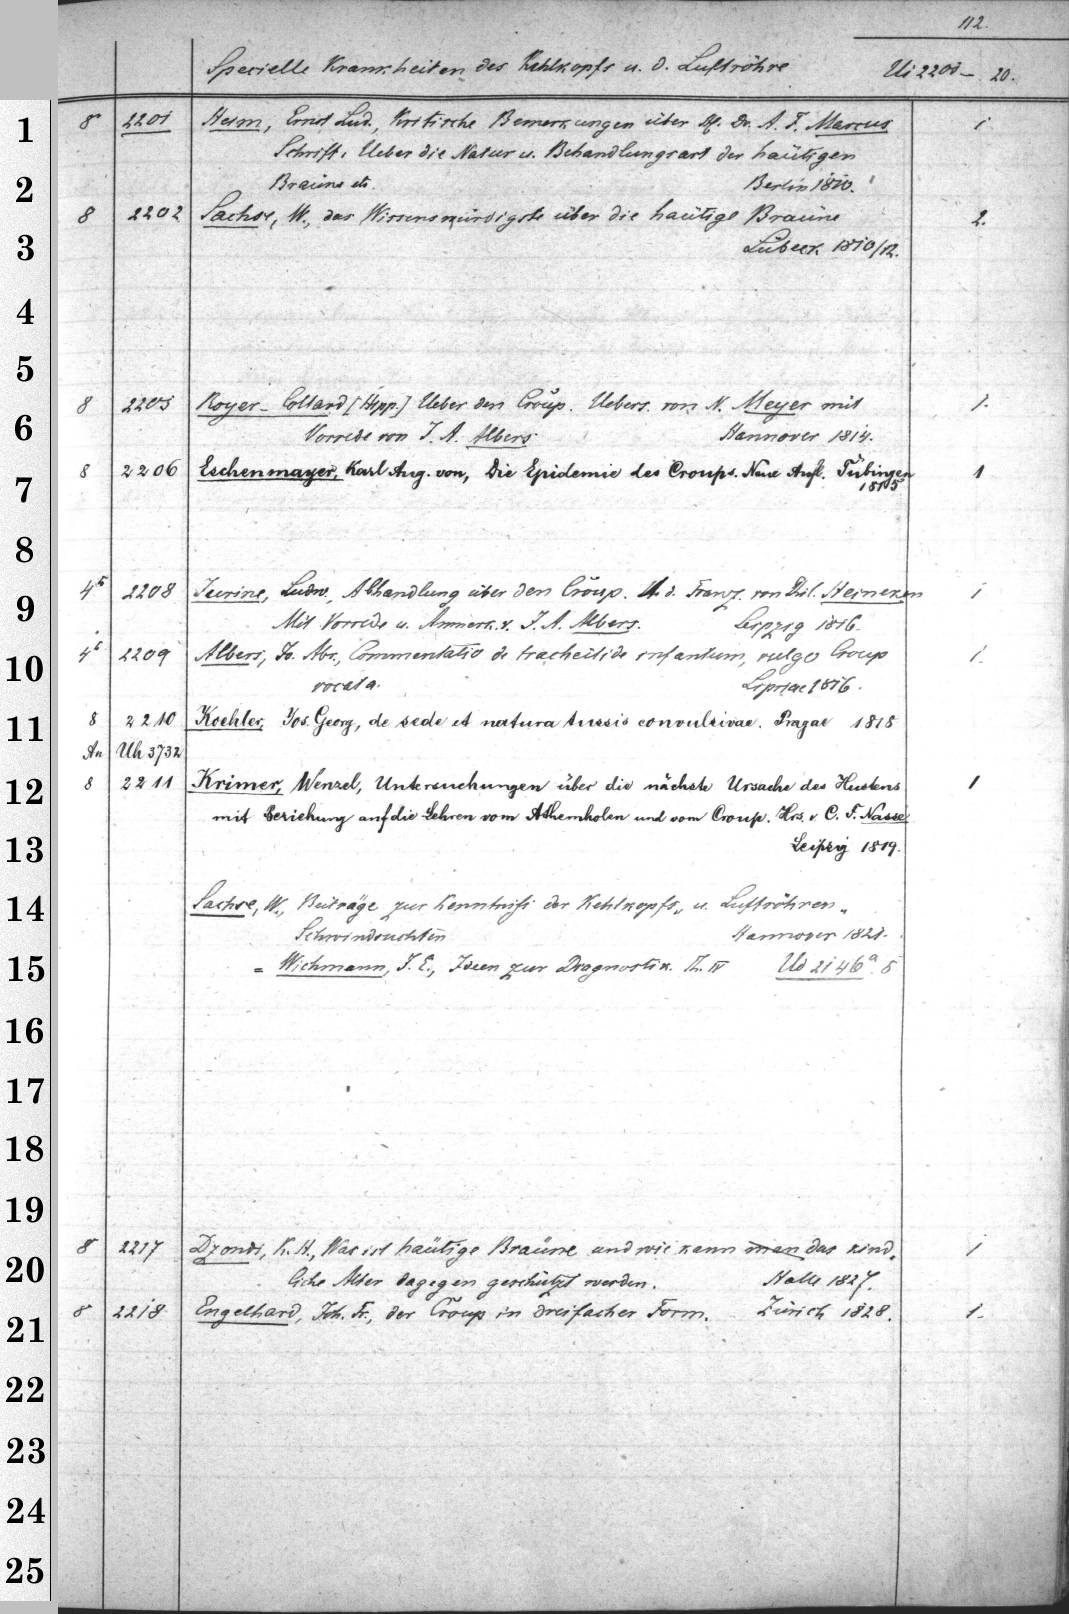 112.
Specielle Krankheiten des Kehlkopfs u. d. Luftröhre Ui 2201 - 20.
1 8 2201 Heim, Ernst Lud., Kritische Bemerkungen über Dr. A. F. Marcus 1
Schrift: Ueber die Natur u. Behandlungsart der haütigen
2 Braüne etc. Berlin 1810.
8 2202 Sachse, W., das Wissenswürdigste über die haütige Braüne 2.
3 Lübeck 1810/12.
4
5
8 2205 Royer-Collard [Hipp.] Ueber den Croup. Uebers. von N. Meyer mit 1.
6 Vorrede von J. A. Albers. Hannover 1814.
8 2206 Eschenmayer, Karl Aug. von, Die Epidemie des Croups. Neue Aufl. Tübingen 1
7 1815
8
4° 2208 Jurine, Ludw., Abhandlung über den Croup. A. d. Franz. von Phil. Heineken 1
9 Mit Vorrede u. Anmerk. v. J. A. Albers. Leipzig 1816.
4° 2209 Albers, Jo. Abr., Commentatio de tracheitide infantum, vulgo Croup 1.
10 vocata. Lipsiae 1816.
11 8 2210 Koehler, Jos. Georg, de sede et natura tussis convulsivae. Pragae 1818
An Uh 3732
12 8 2211 Krimer, Wenzel, Untersuchungen über die nächste Ursache des Hustens 1
mit Beziehung auf die Lehren vom Athemholen und vom Croup. Hrs. v. C. F. Nasse
13 Leipzig 1819.
14 Sachse, W., Beiträge zur Kenntniss der Kehlkopfs- u. Luftröhren-
Schwindsuchten Hannover 1821.
15 = Wichmann, J. E., Ideen zur Diagnostik. Th. IV Ud 2146a. 8
16
17
18
19
8 2217 Dzondi, K. H., Was ist haütige Braüne und wie kann man das kind- 1
20 liche Alter dagegen geschützt werden. Halle 1827.
8 2218 Engelhard, Joh. Fr., der Croup in dreifacher Form. Zürich 1828. 1.
21
22
23
24
25